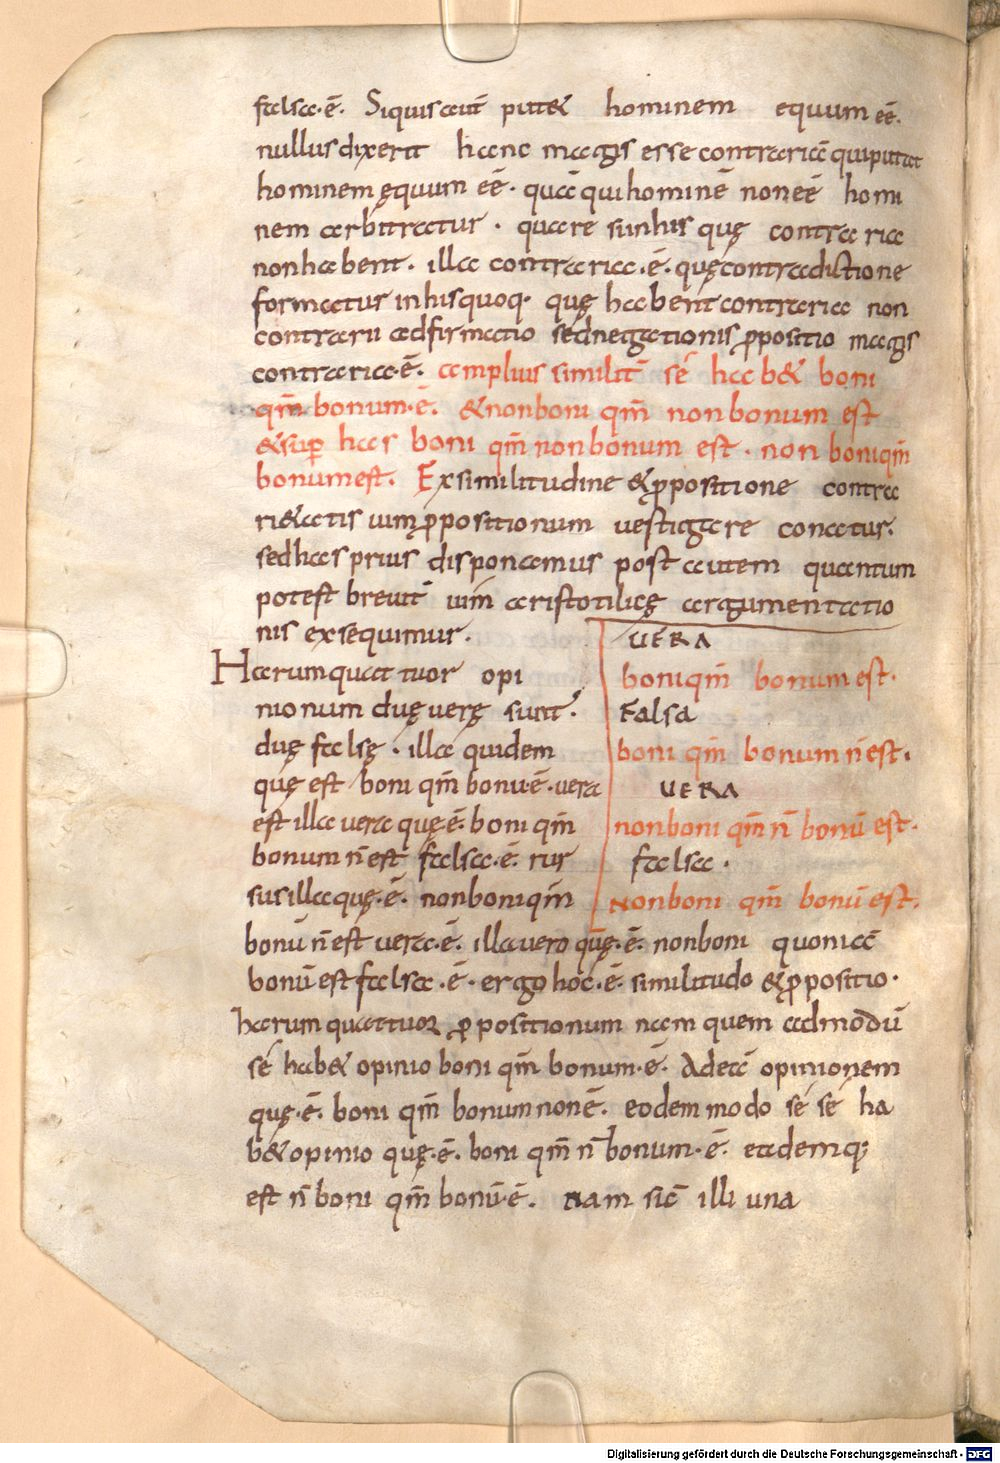 falsa·ē. Siquis aut̄ put& hominem equum eē.
nullus dixerit hanc magis esse contrariā qui putat
hominem ęquum eē· quā qui hominē non eē homi
nem arbitratur · quare sunhis quę contra ria
non habent. illa contraria·ē· quę contradictione
formatur in his quoq· quę habent contraria non
contrarii adfirmatio sed negationis ꝓpositio magis
contraria·ē. amplius similit̄ sé hab& boni
qm̄ bonum·ē. & non boni qm̄ non bonum est
& suꝑ has boni qm̄ non bonum est · non boni qm̄
bonum est. Ex similitudine & ꝓpositione contra
ri&atis uim ꝓpositionum uestigare conatus.
sed has prius disponamus post autem quantum
potest breuit̄ uim aristotilicę argumentatio
nis exsequimur.
Harum quattuor opi
nionum duę verę sunt.
duę falsę · illa quidem
quę est boni qm̄ bonū·ē· vera
est illa uera quę·ē· boni qm̄
bonum n̄ est falsa·ē. rur
sus illa quę·ē· non boni qm̄
VERA
boni qm̄ bonum est.
Falsa
boni qm̄ bonum n̄ est.
VERA
non boni qm̄ n̄ bonū est.
falsa ·
Non boni qm̄ bonū est.
bonū n̄ est vera·ē. illa vero quę·ē· non boni quoniā
bonū est falsa ·ē· ergo hoc·ē· similitudo & ꝓpositio·
harum quattuor ꝓpositionum nam quem admodū
sé hab& opinio boni qm̄ bonum·ē· Ad eā opinionem
quę·ē· boni qm̄ bonum non ē. eodem modo sé sé ha
b& opinio quę·ē· boni qm̄ n̄ bonum·ē· eademq;
est n̄ boni qm̄ bonū·ē. nam sic̄ illi una
Digitalisierung gefördert durch die Deutsche Forschungsgemeinschaft - DFG